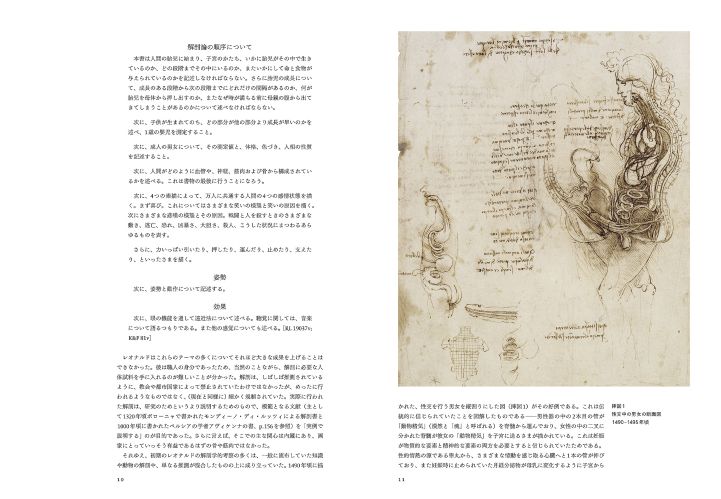 解剖論の順序について
本書は人間の胎児に始まり、子宮のかたち、いかに胎児がその中で生き
ているのか、どの段階までその中にいるのか、またいかにして命と食物が
与えられているのかを記述しなければならない。さらに胎児の成長につい
て、成長のある段階から次の段階までにどれだけの間隔があるのか、何が
胎児を母体から押し出すのか、またなぜ時が満ちる前に母親の腹から出て
きてしまうことがあるのかについて述べなければならない。
次に、子供が生まれてのち、どの部分が他の部分より成長が早いのかを
述べ、1歳の嬰児を測定すること。
次に、成人の男女について、その測定値と、体格、色づき、人相の性質
を記述すること。
次に、人間がどのように血管や、神経、筋肉および骨から構成されてい
るかを述べる。これは書物の最後に行うことになろう。
次に、4つの素描によって、万人に共通する人間の4つの感情状態を描
く。まず喜び。これについてはさまざまな笑いの様態と笑いの原因も描く。
次にさまざまな悲嘆の様態とその原因。戦闘と人を殺すときのさまざまな
動き、逃亡、恐れ、凶暴さ、大胆さ、殺人、こうした状況にまつわるあら
ゆるものを表す。
さらに、力いっぱい引いたり、押したり、運んだり、止めたり、支えた
り、といったさまを描く。
姿勢
次に、姿勢と動作について記述する。
効果
次に、眼の機能を通して遠近法について述べる。聴覚に関しては、音楽
について語るつもりである。また他の感覚についても述べる。[RL 19037v;
K&P 81v]
レオナルドはこれらのテーマの多くについてそれほど大きな成果を上げることは
できなかった。彼は職人の身分であったため、当然のことながら、解剖に必要な人
体試料を手に入れるのが難しいことが分かった。解剖は、しばしば推測されている
ように、教会や都市国家によって禁止されていたわけではなかったが、めったに行
われるようなものではなく、(現在と同様に)細かく規制されていた。実際に行われ
た解剖は、研究のためというより説明するためのもので、模範となる文献(主とし
て1320年頃ボローニャで書かれたモンディーノ・ディ・ルッツィによる解剖書と
1000年頃に書かれたペルシアの学者アヴィケンナの書、p.156を参照)を「実例で
説明する」のが目的であった。さらに言えば、そこでの主な関心は内臓にあり、画
家にとっていっそう有益であるはずの骨や筋肉ではなかった。
それゆえ、初期のレオナルドの解剖学的考察の多くは、一般に流布していた知識
や動物の解剖や、単なる推測が混合したものの上に成り立っていた。1490年頃に描
10
かれた、性交を行う男女を縦割りにした図(挿図1)がその好例である。これは伝
統的に信じられていたことを図解したものである──男性器の中の2本の管が
「動物精気」(漠然と「魂」と呼ばれる)を脊髄から運んでおり、女性の中の二叉に
分かれた脊髄が彼女の「動物精気」を子宮に送るさまが描かれている。これは妊娠
が物質的な要素と精神的な要素の両方を必要とすると信じられていたためである。
性的情熱の源である睾丸から、さまざまな情動を感じ取る心臓へと1本の管が伸び
ており、また妊娠時に止められていた月経分泌物が母乳に変化するように子宮から
11
挿図1
性交中の男女の断面図
1490–1495年頃